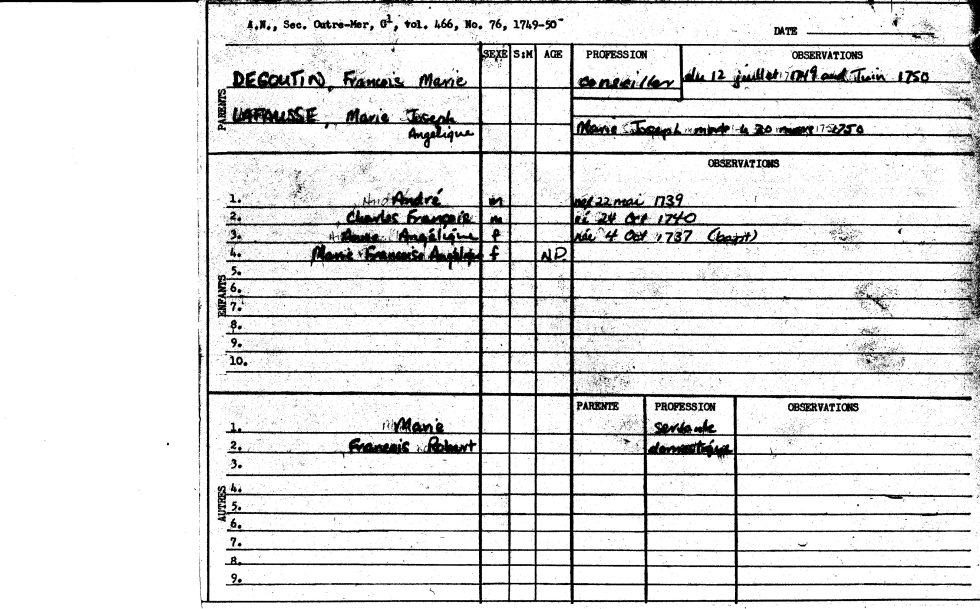 A.N., Sec. Outre-Mer, G¹, vol. 466, No. 76, 1749-50
DATE
SEXE S:M AGE PROFESSION OBSERVATIONS
PARENTS
DEGOUTIN, Francois Marie conseiller du 12 juillet 1749 and Juin 1750
LAFAUSSE, Marie Joseph
Angélique Marie Joseph morte le 30 1750
OBSERVATIONS
ENFANTS
1. André m né 22 mai 1739
2. Charles François m né 24 Oct 1740
3. Anne Angélique f née 4 Oct 1737 (bapt)
4. Marie Francoise Angélique f ND
5.
6.
7.
8.
9.
10.
PARENTE PROFESSION OBSERVATIONS
AUTRES
1. Marie servante
2. François Robert domestique
3.
4.
5.
6.
7.
8.
9.